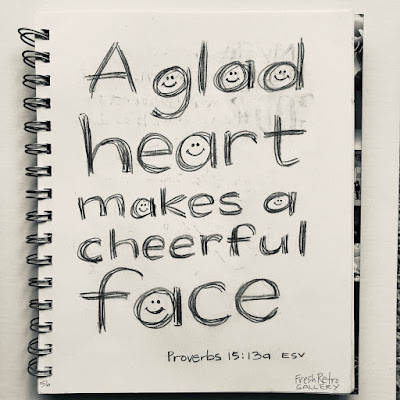 A glad
heart
makes a
cheerful
face
Proverbs 15:13a ESV
56
Fresh Retro
GALLERY